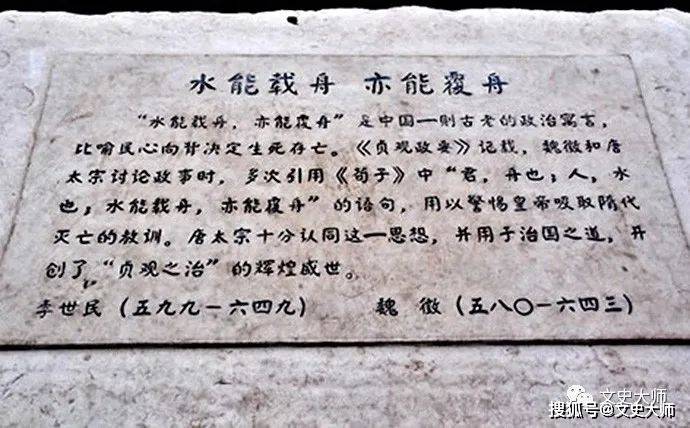 水能载舟 亦能覆舟
“水能载舟，亦能覆舟”是中国一则古老的政治寓言，
比喻民心向背决定生死存亡。《贞观政要》记载，魏徵和唐
太宗讨论政事时，多次引用《荀子》中“君，舟也；人，水
也；水能载舟，亦能覆舟”的语句，用以警惕皇帝吸取隋代
灭亡的教训。唐太宗十分认同这一思想，并用于治国之道，开
创了“贞观之治”的辉煌盛世。
李世民（五九九－六四九） 魏 徵（五八〇－六四三）
文史大师
搜狐号@文史大师